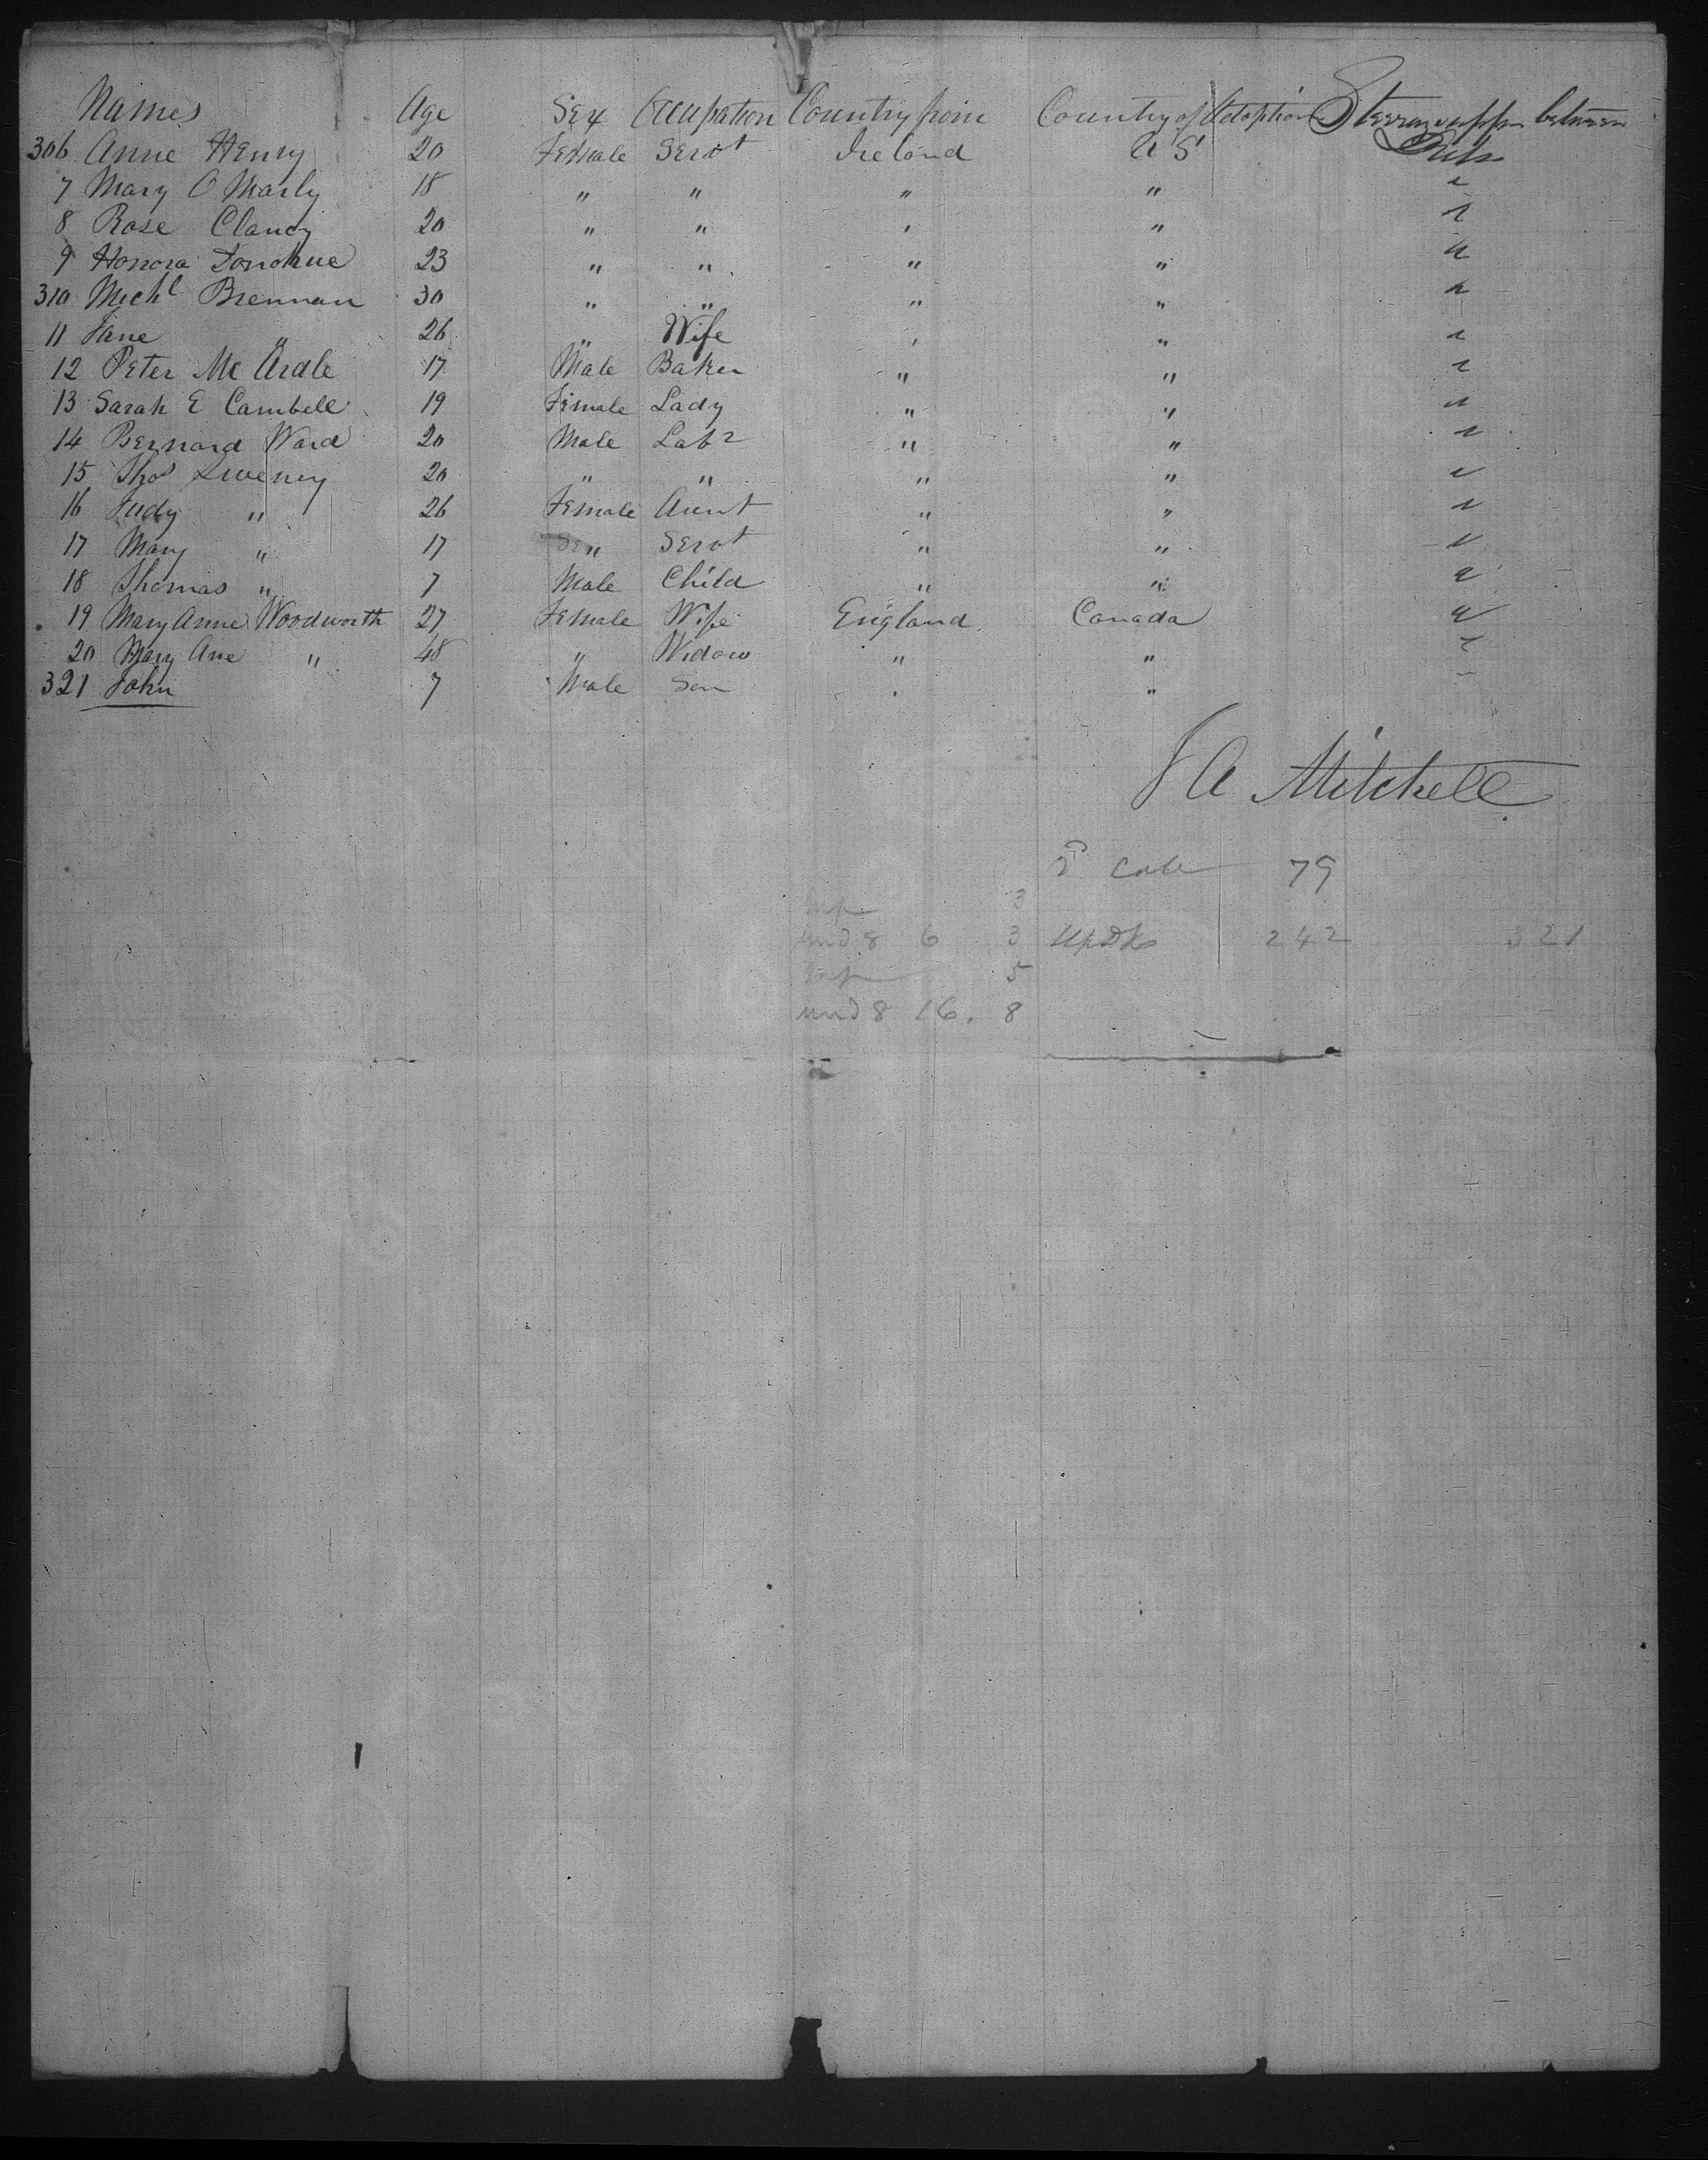 Names Age Sex Occupation Country from Country of Adoption Steerage upper between
306 Anne Henry 20 Female Servt Ireland U S Decks
7 Mary O Marly 18 " " " " "
8 Rose Clancy 20 " " " " "
9 Honora Donohue 23 " " " " "
310 Michl Brennan 30 " " " " "
11 Jane " 26 " Wife " " "
12 Peter Mc Ardle 17 Male Baker " " "
13 Sarah E Cambell 19 Female Lady " " "
14 Bernard Ward 20 Male Labr " " "
15 Thos Sweney 20 " " " " "
16 Judy " 26 Female Aunt " " "
17 Mary " 17 " Servt " " "
18 Thomas " 7 Male Child " " "
19 Mary Anne Woodworth 27 Female Wife England Canada "
20 Mary Ane " 48 " Widow " " "
321 John 7 Male Son " " "
J A Mitchell
79
3
und 8 6 3 Up Dk 242 321
5
und 8 16. 8